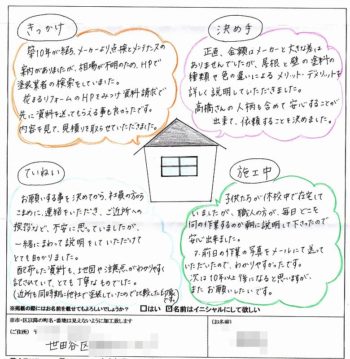 きっかけ
築10年が経ち、メーカーより点検とメンテナンスの
案内がありましたが、相場が不明のため、HPで
塗装業者の検索をしていました。
花まるリフォームのHPをみつけ資料請求で
先に資料を送ってもらえる事も良かったです。
内容を見て、見積りを取らせていただきました。
決め手
正直、金額はメーカーと大きな差は
ありませんでしたが、屋根と壁の塗料の
種類や色の違いによるメリット・デメリットを
詳しく説明していただきました。
高橋さんの人柄も含めて安心することが
出来て、依頼することを決めました。
ていねい
お願いする事を決めてから、社員の方から
こまめに、連絡をいただき、ご近所への
挨拶など、不安に思っていましたが、
一緒にまわって説明をしていただけて
とても助かりました。
配布した資料も、地図や注意点がわかりやすく
記されていて、とても丁寧なものでした。
(近所も同時期に他社で塗装していたので比較した印象です)
施工中
子供たちが休校中で在宅して
いましたが、職人の方が、毎日どこを
何の作業するのか朝に説明して下さったので
安心出来ました。
又、前日の作業の写真をメールにて送って
いただいたので、わかりやすかったです。
次は10年以上後になると思いますが、
またお願いしたいです。
※掲載の際にはお名前を載せてもよろしいでしょうか? □はい ☑名前はイニシャルにして欲しい
※市・区以降の町名・番地は見えないように加工致します
(ご住所) 〒
(お名前)
世田谷区